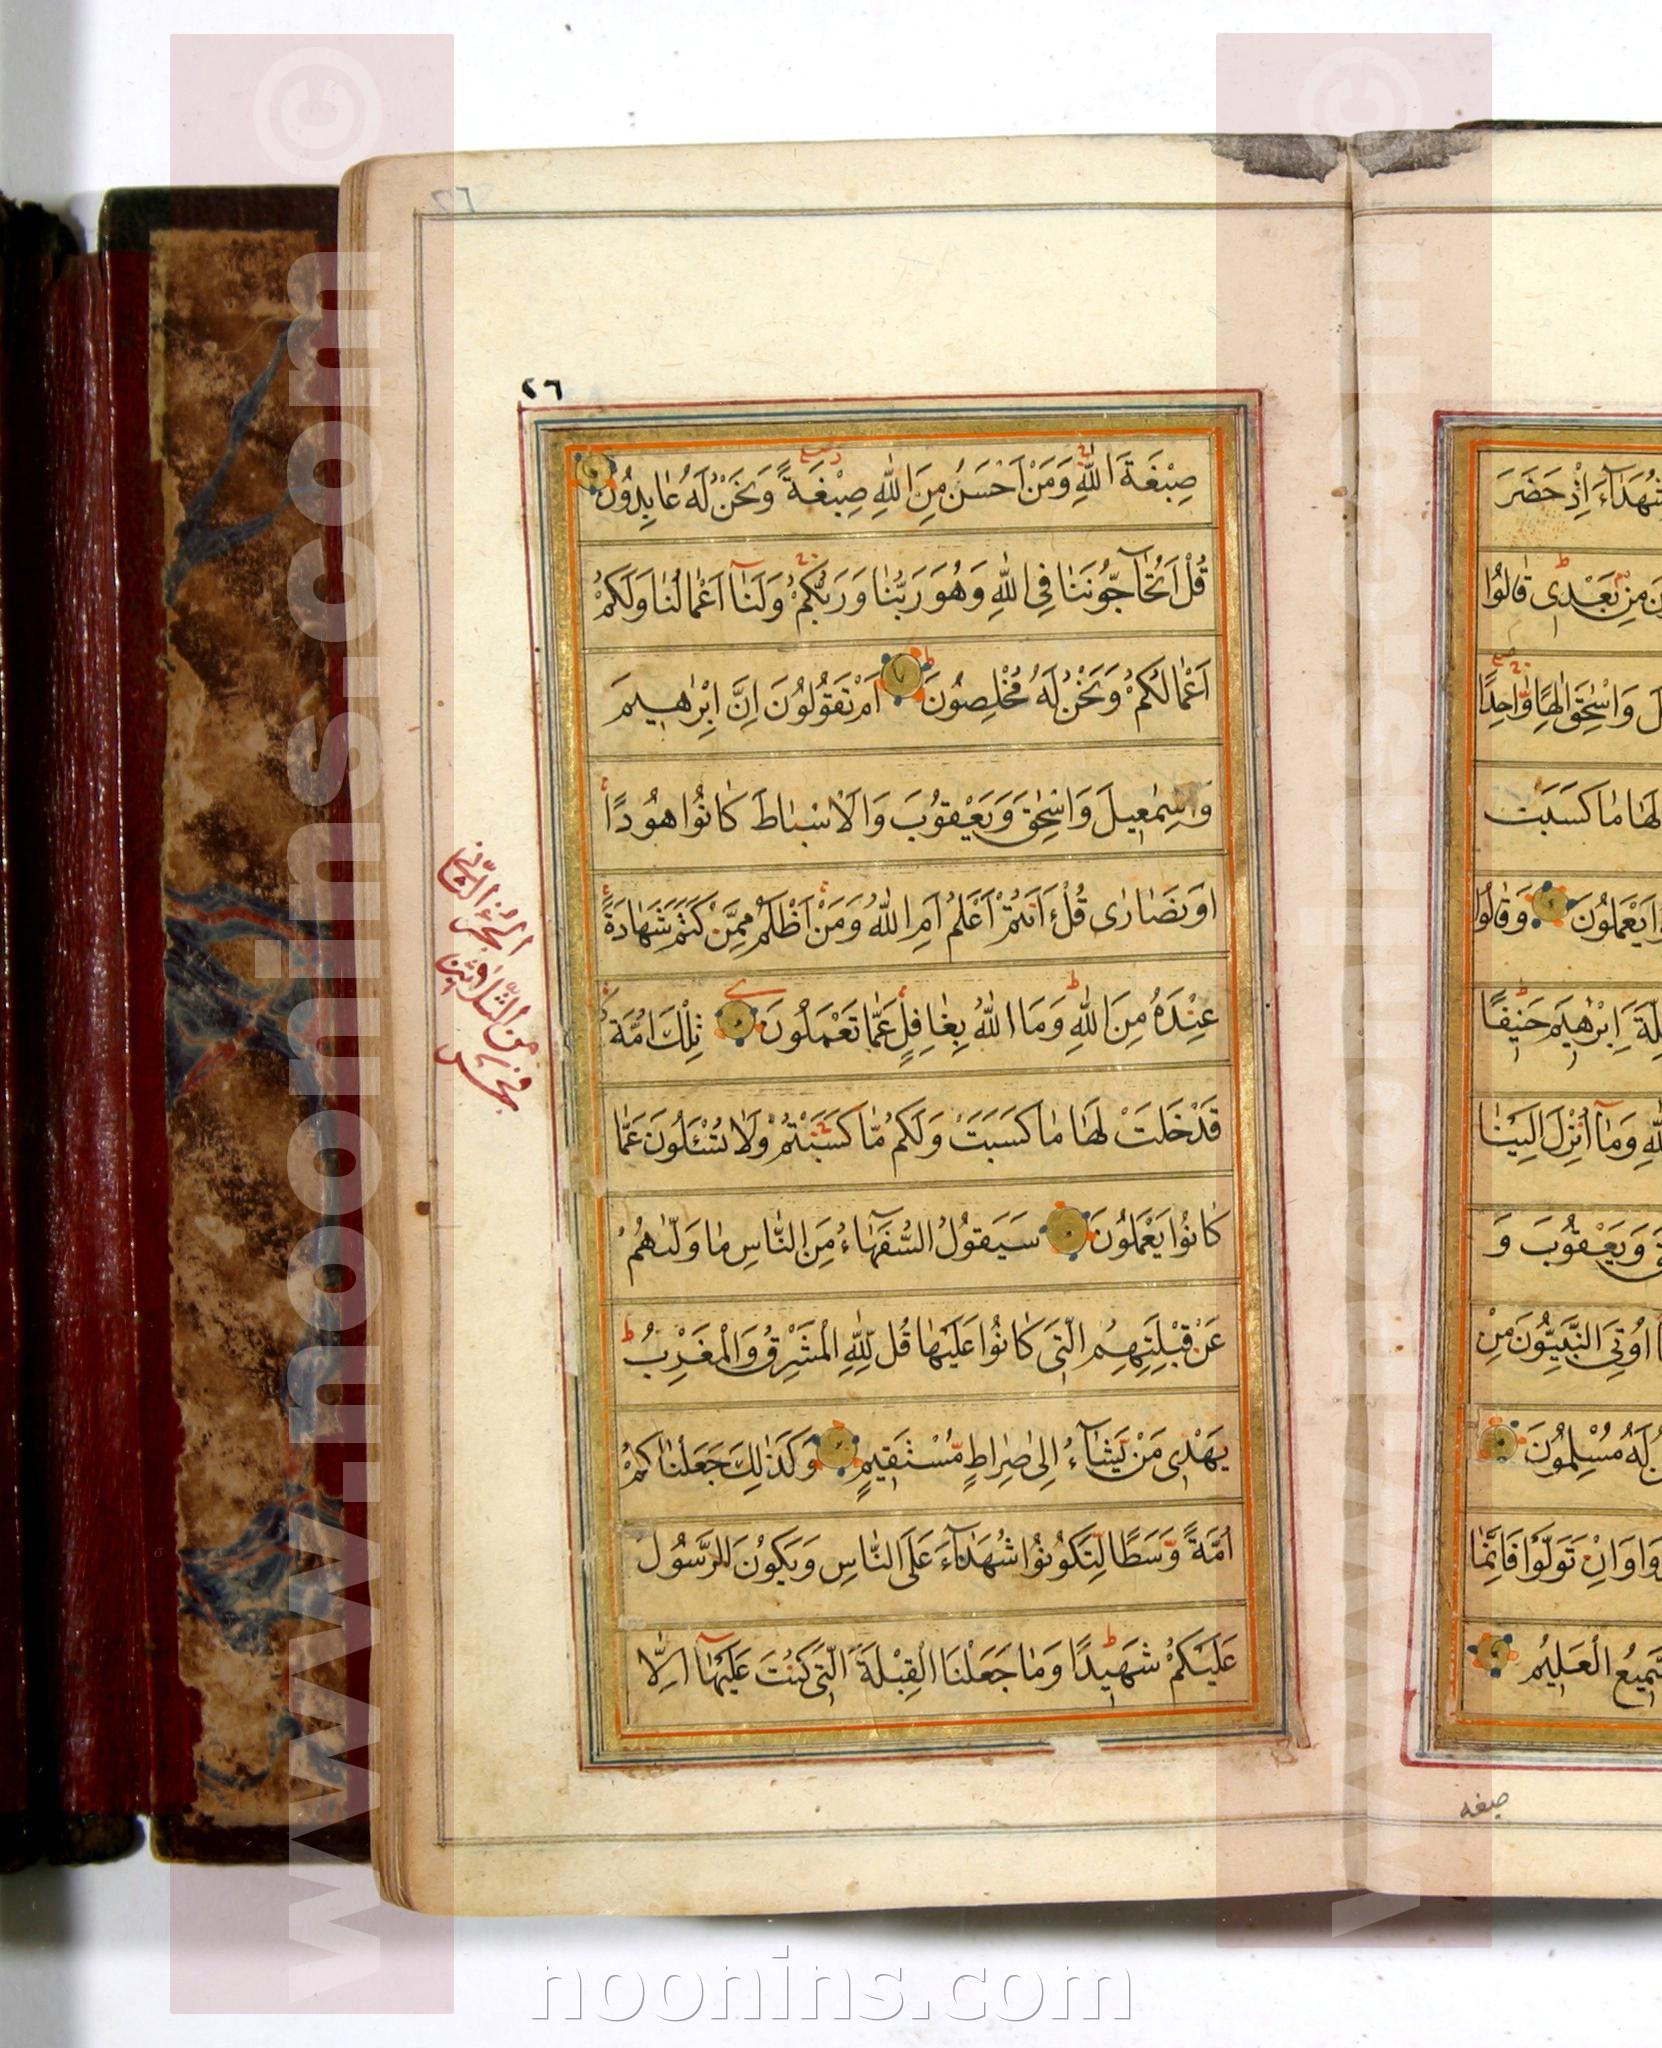 ٢٦
صِبْغَةَ اللّٰهِ وَمَنْ اَحْسَنُ مِنَ اللّٰهِ صِبْغَةً وَنَحْنُ لَهُ عَابِدُونَ
قُلْ اَتُحَآجُّونَنَا فِي اللّٰهِ وَهُوَ رَبُّنَا وَرَبُّكُمْ وَلَنَآ اَعْمَالُنَا وَلَكُمْ
اَعْمَالُكُمْ وَنَحْنُ لَهُ مُخْلِصُونَ اَمْ تَقُولُونَ اِنَّ اِبْرٰهِيمَ
وَاِسْمٰعِيلَ وَاِسْحٰقَ وَيَعْقُوبَ وَالْاَسْبَاطَ كَانُوا هُودًا
اَوْ نَصَارٰى قُلْ ءَاَنْتُمْ اَعْلَمُ اَمِ اللّٰهُ وَمَنْ اَظْلَمُ مِمَّنْ كَتَمَ شَهَادَةً
عِنْدَهُ مِنَ اللّٰهِ وَمَا اللّٰهُ بِغَافِلٍ عَمَّا تَعْمَلُونَ تِلْكَ اُمَّةٌ
قَدْ خَلَتْ لَهَا مَا كَسَبَتْ وَلَكُمْ مَّا كَسَبْتُمْ وَلَا تُسْـَٔلُونَ عَمَّا
كَانُوا يَعْمَلُونَ سَيَقُولُ السُّفَهَآءُ مِنَ النَّاسِ مَا وَلّٰىهُمْ
عَنْ قِبْلَتِهِمُ الَّتِي كَانُوا عَلَيْهَا قُل لِّلّٰهِ الْمَشْرِقُ وَالْمَغْرِبُ
يَهْدِي مَنْ يَّشَآءُ اِلٰى صِرَاطٍ مُّسْتَقِيمٍ وَكَذٰلِكَ جَعَلْنَاكُمْ
اُمَّةً وَّسَطًا لِّتَكُونُوا شُهَدَآءَ عَلَى النَّاسِ وَيَكُونَ الرَّسُولُ
عَلَيْكُمْ شَهِيدًا وَمَا جَعَلْنَا الْقِبْلَةَ الَّتِي كُنْتَ عَلَيْهَآ اِلَّا
الجزء الثاني
من الثلاثين
شُهَدَآءَ اِذْ حَضَرَ
مِنْ بَعْدِي قَالُوا
وَاِسْحٰقَ اِلٰهًا وَّاحِدًا
لَهَا مَا كَسَبَتْ
يَعْمَلُونَ وَقَالُوا
مِلَّةَ اِبْرٰهِيمَ حَنِيفًا
وَمَآ اُنْزِلَ اِلَيْنَا
وَيَعْقُوبَ وَ
اُوتِيَ النَّبِيُّونَ مِنْ
لَهُ مُسْلِمُونَ
وَاِنْ تَوَلَّوْا فَاِنَّمَا
السَّمِيعُ الْعَلِيمُ
صبغة
www.noonins.com ©
www.noonins.com ©
noonins.com